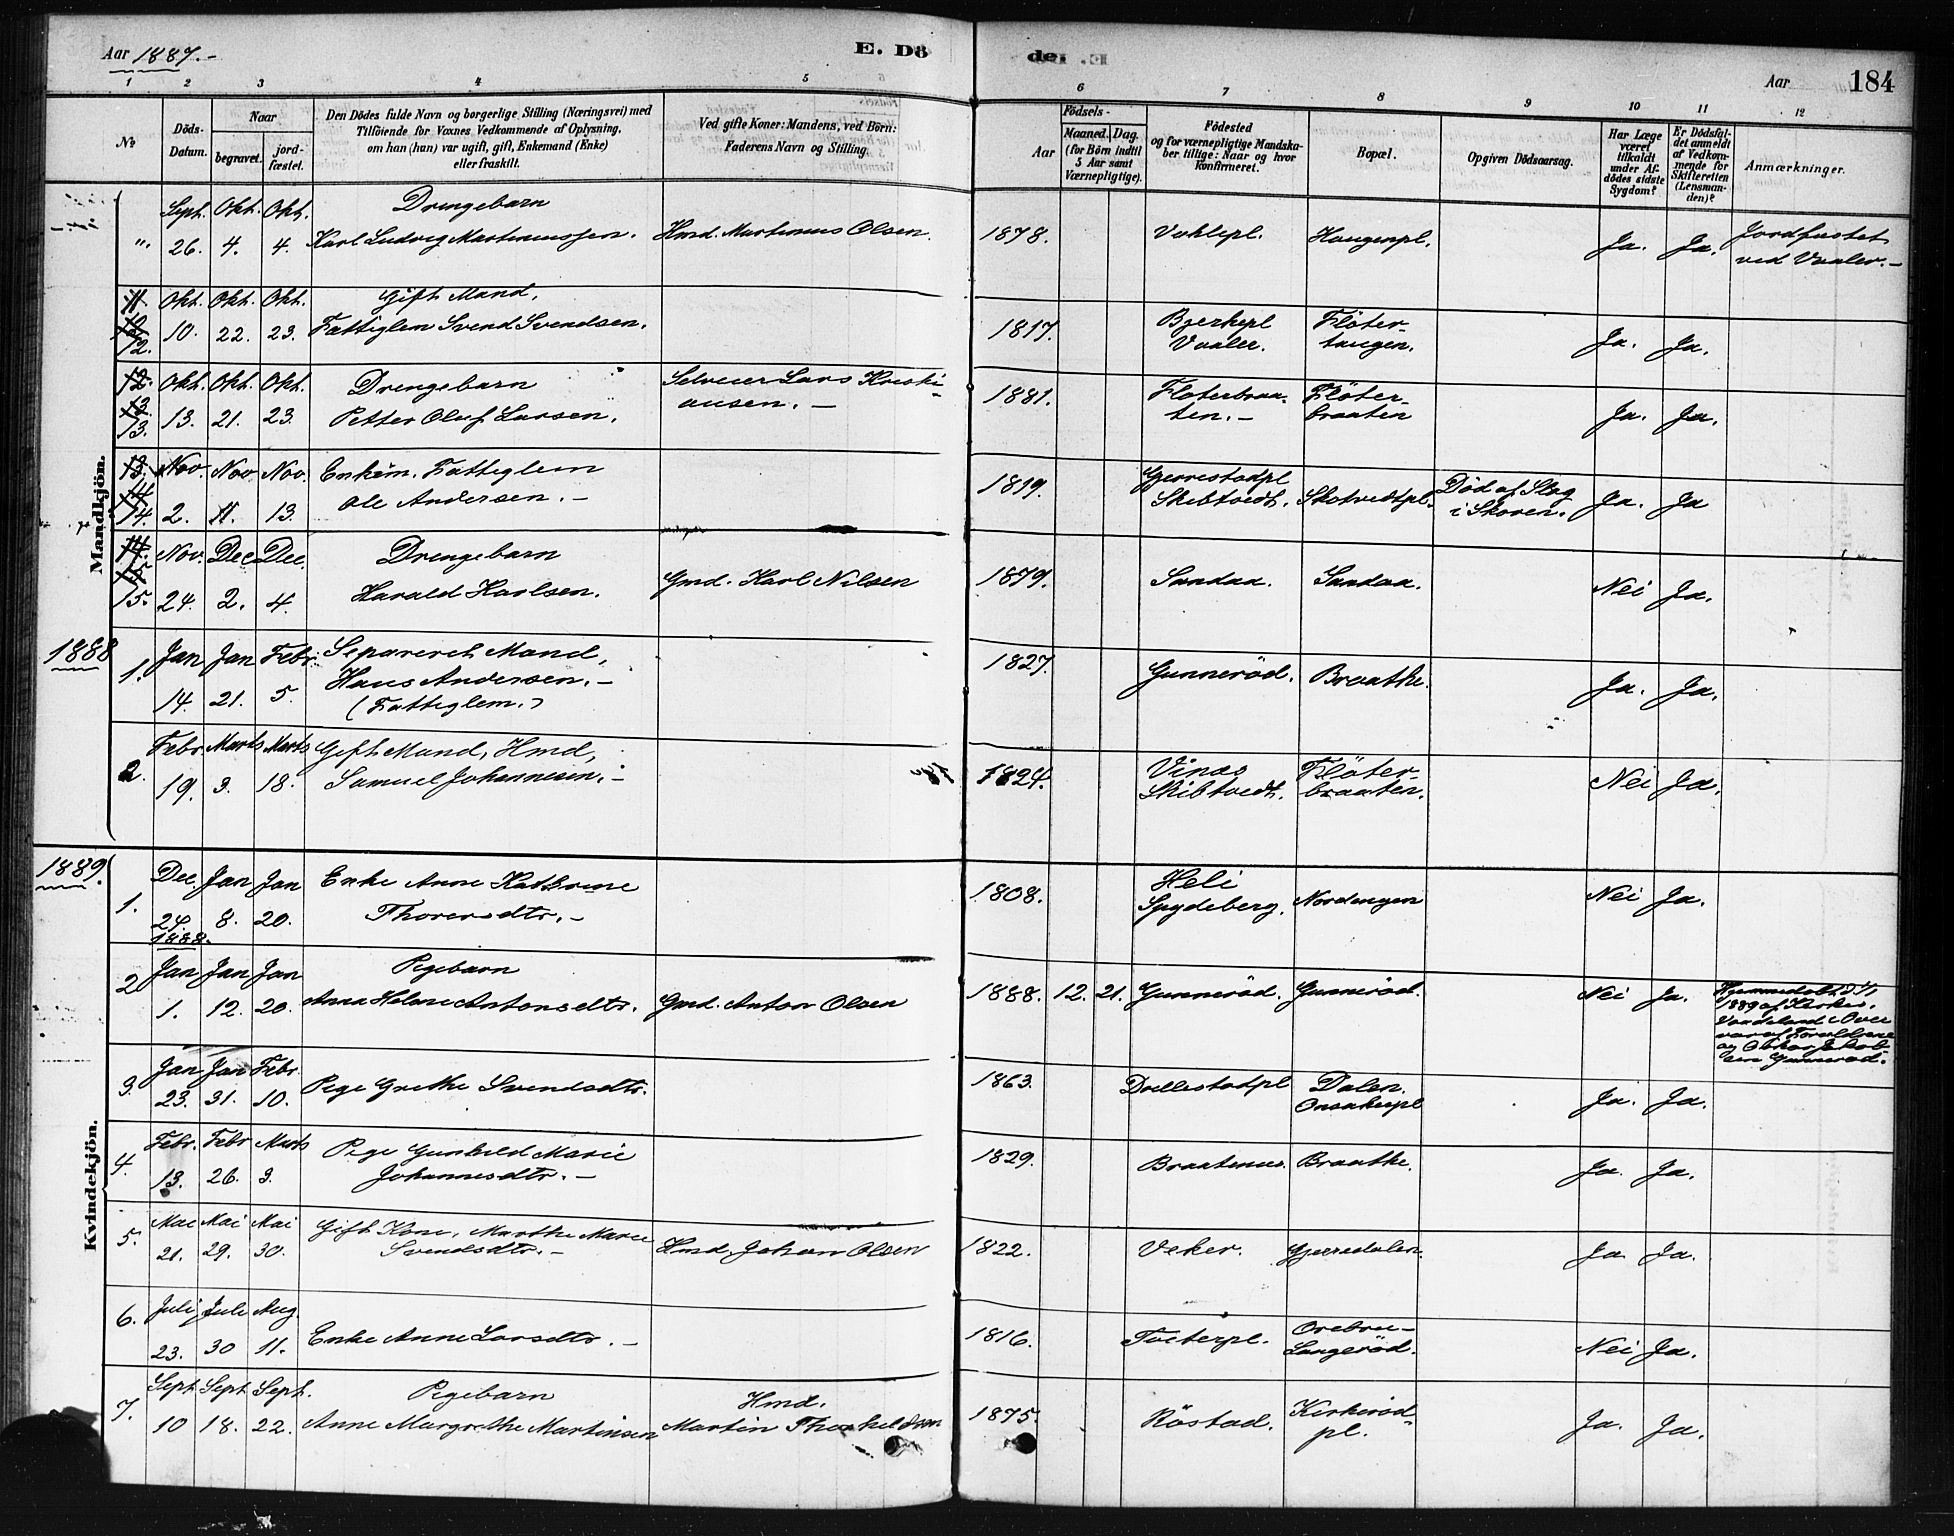 Aar 1887.-
E. Dö
de. E.
Aar
184
1 2 3 4 5 6 7 8 9 10 11 12
No
Döds-Datum.
Naar
begravet.
jord-fæstet.
Den Dödes fulde Navn og borgerlige Stilling (Næringsvei) med
Tilföiende for Voxnes Vedkommende af Oplysning,
om han (hun) var ugift, gift, Enkemand (Enke)
eller fraskilt.
Ved gifte Koner: Mandens, ved Börn:
Faderens Navn og Stilling.
Födsels-
Aar
Maaned. Dag.
(for Börn indtil
5 Aar samt
Værnepligtige).
Födested
og for værnepligtige Mandska-
ber tillige: Naar og hvor
konfirmeret.
Bopæl.
Opgiven Dödsaarsag.
Har Læge
været
tilkaldt
under Af-
dödes sidste
Sygdom?
Er Dödsfal-
det anmeldt
af Vedkom-
mende for
Skifteretten
(Lensman-
den)?
Anmærkninger.
Mandkjön.
" Sept. 26. Okt. 4. Okt. 4. Drengebarn
Karl Ludvig Martinussen. Hmd. Martinus Olsen. 1878. Haugenpl. Ja. Ja. Jordfæstet
ved Vaaler.-
12. Okt. 10. Okt. 22. Okt. 23. Gift Mand,
Fattiglem Svend Svendsen. 1817. Bjerkepl
Vaaler. Flöter-
tangen. Ja. Ja.
13. Okt. 13. Okt. 21. Okt. 23. Drengebarn
Petter Oluf Larsen. Selveier Lars Kristi-
ansen.- 1881. Floterbraa-
ten.- Flöter-
braaten Ja. Ja.
14. Nov. 2. Nov 11. Nov. 13. Enkem. Fattiglem
Ole Andersen.- 1819. Gjerrestadpl
Skibtvedt. Skotvedtpl. Död af Slag
i Skoven. Ja. Ja
15. Nov. 24. Dec 2. Dec. 4. Drengebarn
Harald Karlsen. Gmd. Karl Nilsen 1879. Sandaa. Sandaa. Nei Ja.
1888
1. Jan 14. Jan 21. Febr. 5. Separeret Mand,
Hans Andersen.-
(Fattiglem.) 1827. Gunneröd. Braathe. Ja. Ja.
2. Febr. 19. Marts 3. Marts 18. Gift Mand, Hmd,
Samuel Johannesen.- 1824. Vinas
Skibtvedt. Flöter-
braaten. Nei Ja.
Kvindekjön.
1889.
1. Dec. 24. 1888. Jan 8. Jan 20. Enke Anne Kathrine
Thoresdtr.- 1808. Heli
Spydeberg. Nordengen Nei Ja.
2 Jan 1. Jan 12. Jan 20. Pigebarn
Anna Helene Antonsdtr. Gmd. Anton Olsen 1888. 12. 21. Gunneröd. Gunneröd. Nei Ja.
3. Jan 23. Jan 31. Febr 10. Pige Grethe Svendsdtr. 1863. Dællestadpl Dalen.
Onsakerpl Ja. Ja.
4. Febr. 13. Febr 26. Marts 3. Pige Gunhild Marie
Johannesdtr.- 1829. Braatenes. Braathe. Ja. Ja.
5. Mai 21. Mai 29. Mai 30. Gift Kone, Marthe Marie
Svendsdtr.- Hmd. Johan Olsen 1822. Veker. Gjerredalen. Ja Ja.
6. Juli 23. Juli 30 Aug. 11. Enke Anne Larsdtr.- 1816. Toeterpl. Orebru-
Langeröd. Nei Ja.
7. Sept 10 Sept. 18. Sept. 22. Pigebarn
Anne Margrethe Martinsen Hmd.
Martin Thorkildsen 1875. Röstad. Kirkeröd-
pl. Ja. Ja.